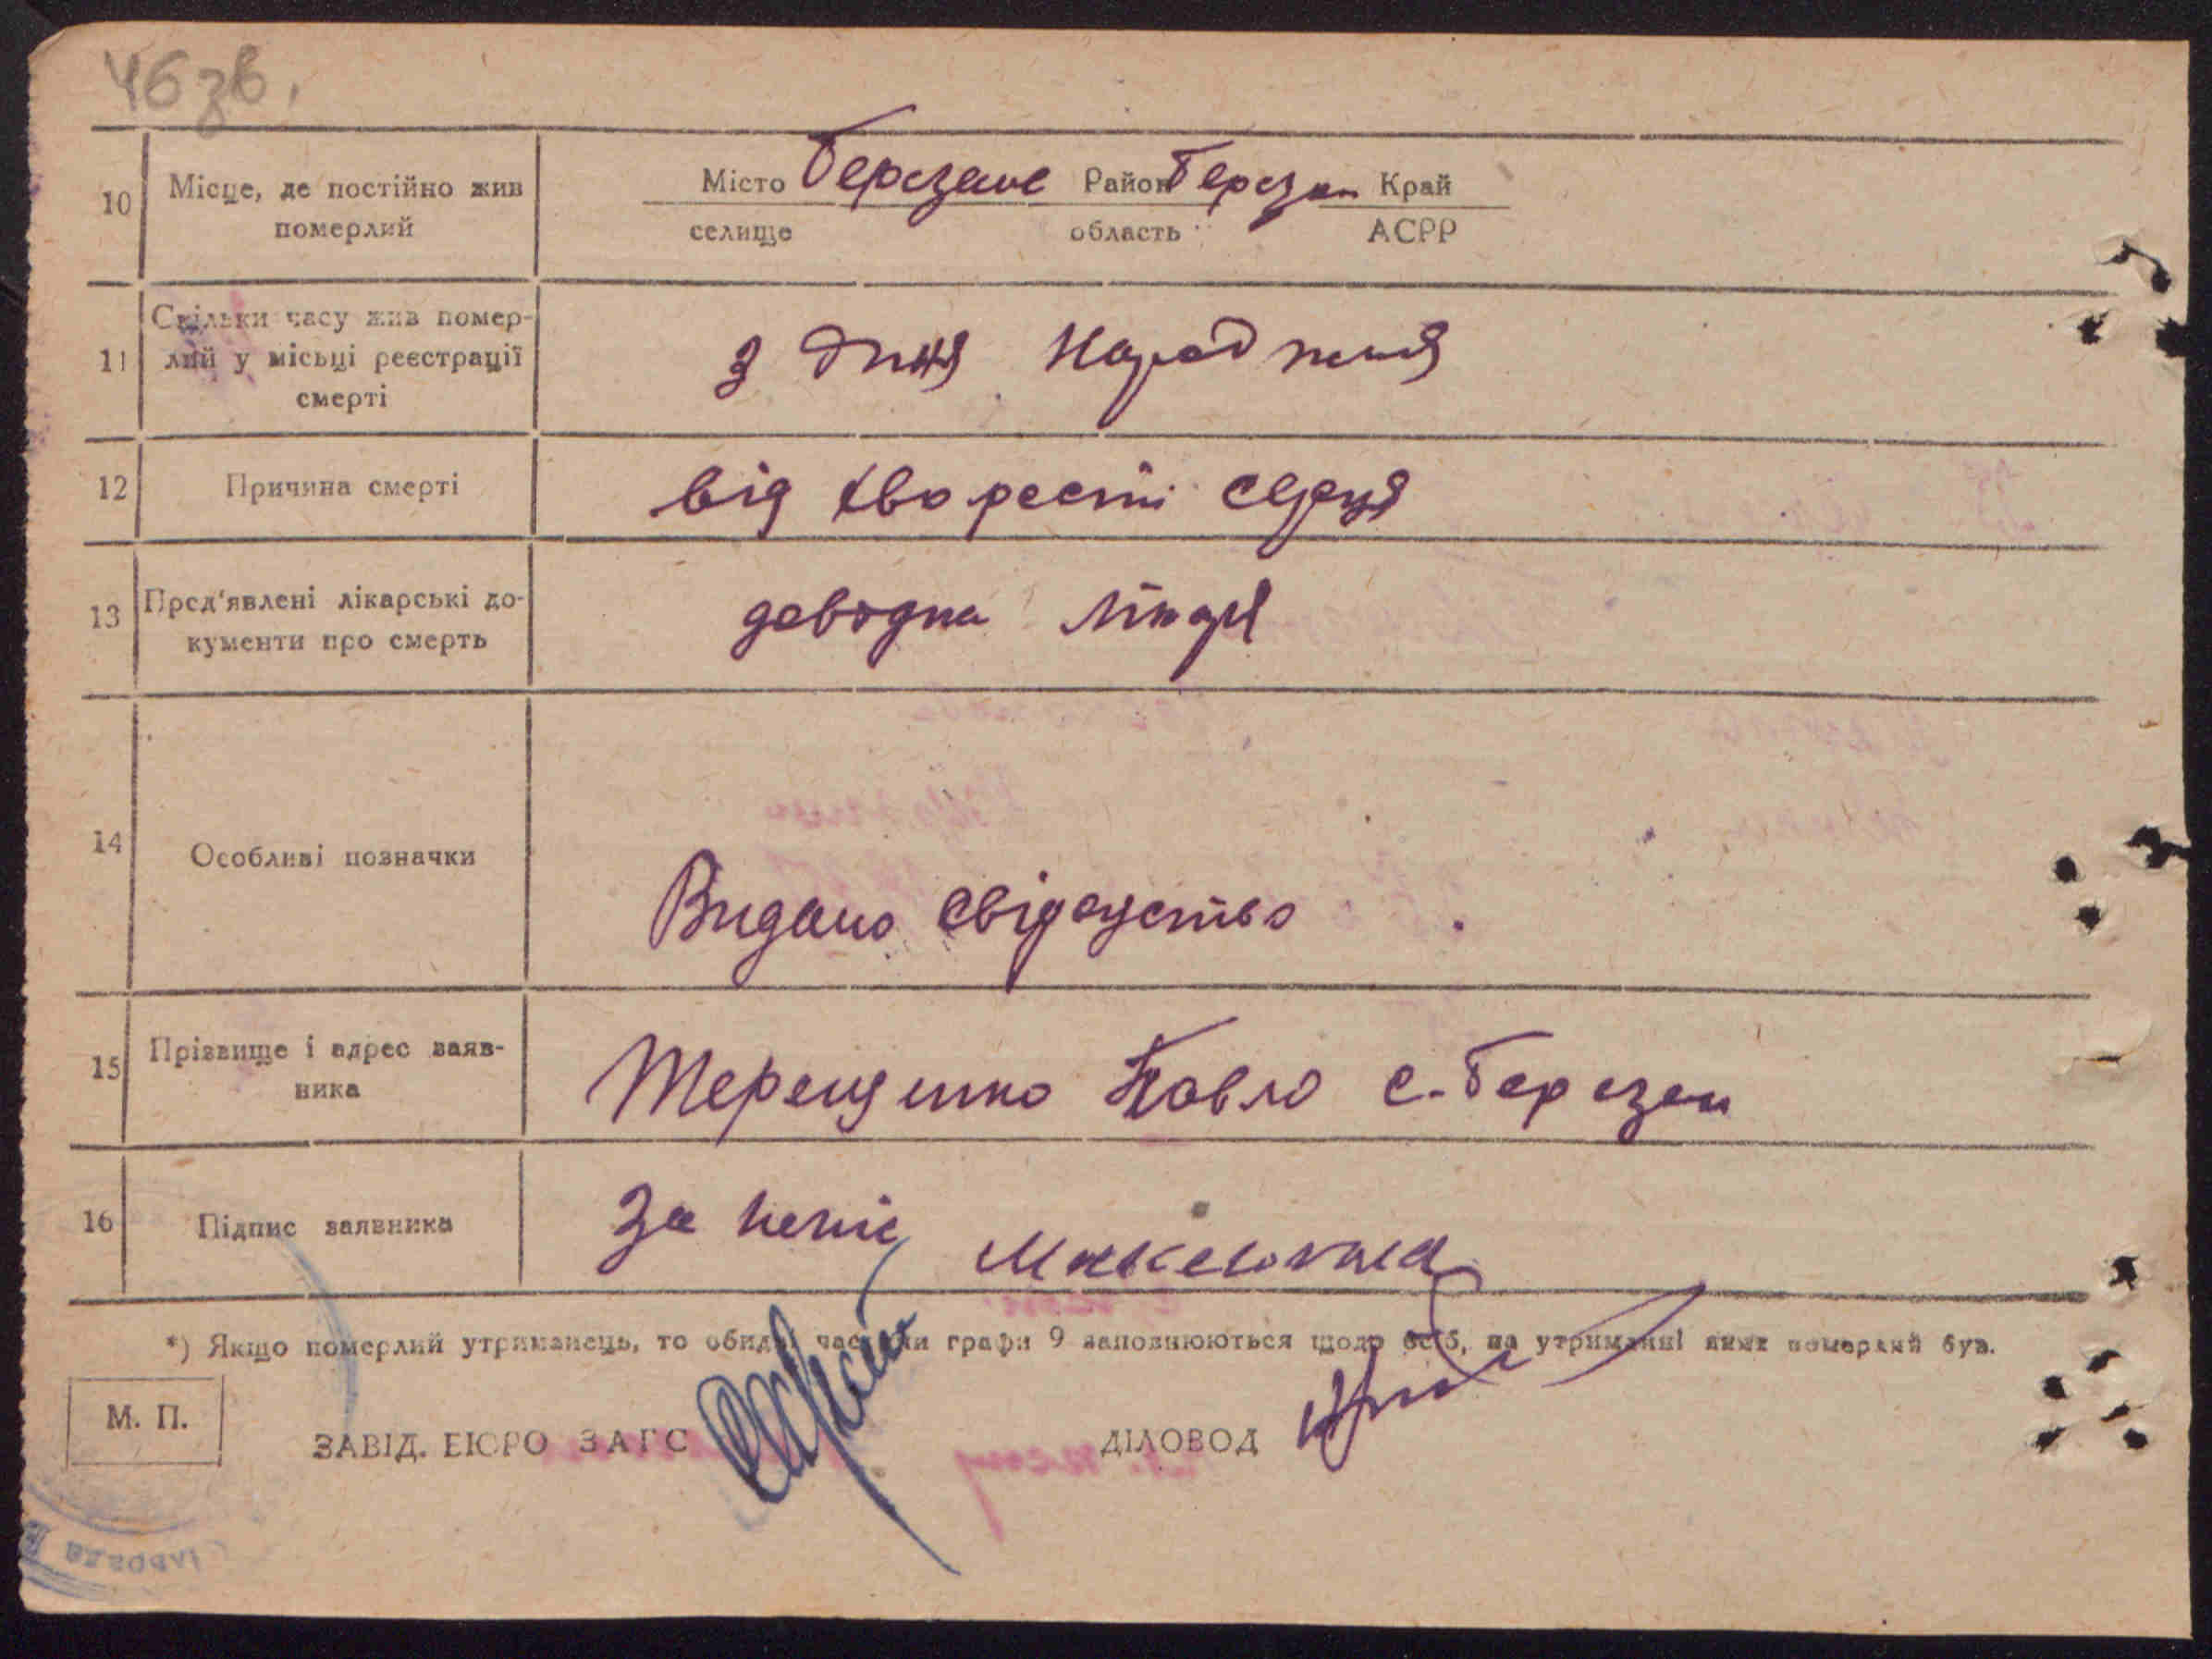 46 зв.
10 Місце, де постійно жив померлий
Місто Березане Район Березан Край
селище область АСРР
11 Скільки часу жив помер-
лий у місьці реєстрації
смерті
з дня народження
12 Причина смерті
від хворости серця
13 Пред'явлені лікарські до-
кументи про смерть
довідка лікаря
14 Особливі позначки
Видано свідоцтво
15 Прізвище і адрес заяв-
ника
Терещенко Павло с. Березан
16 Підпис заявника
За непис
*) Якщо померлий утриманець, то обидві частини графи 9 заповнюються щодо осіб, на утриманні яких померлий був.
М. П.
ЗАВІД. БЮРО ЗАГС ДІЛОВОД